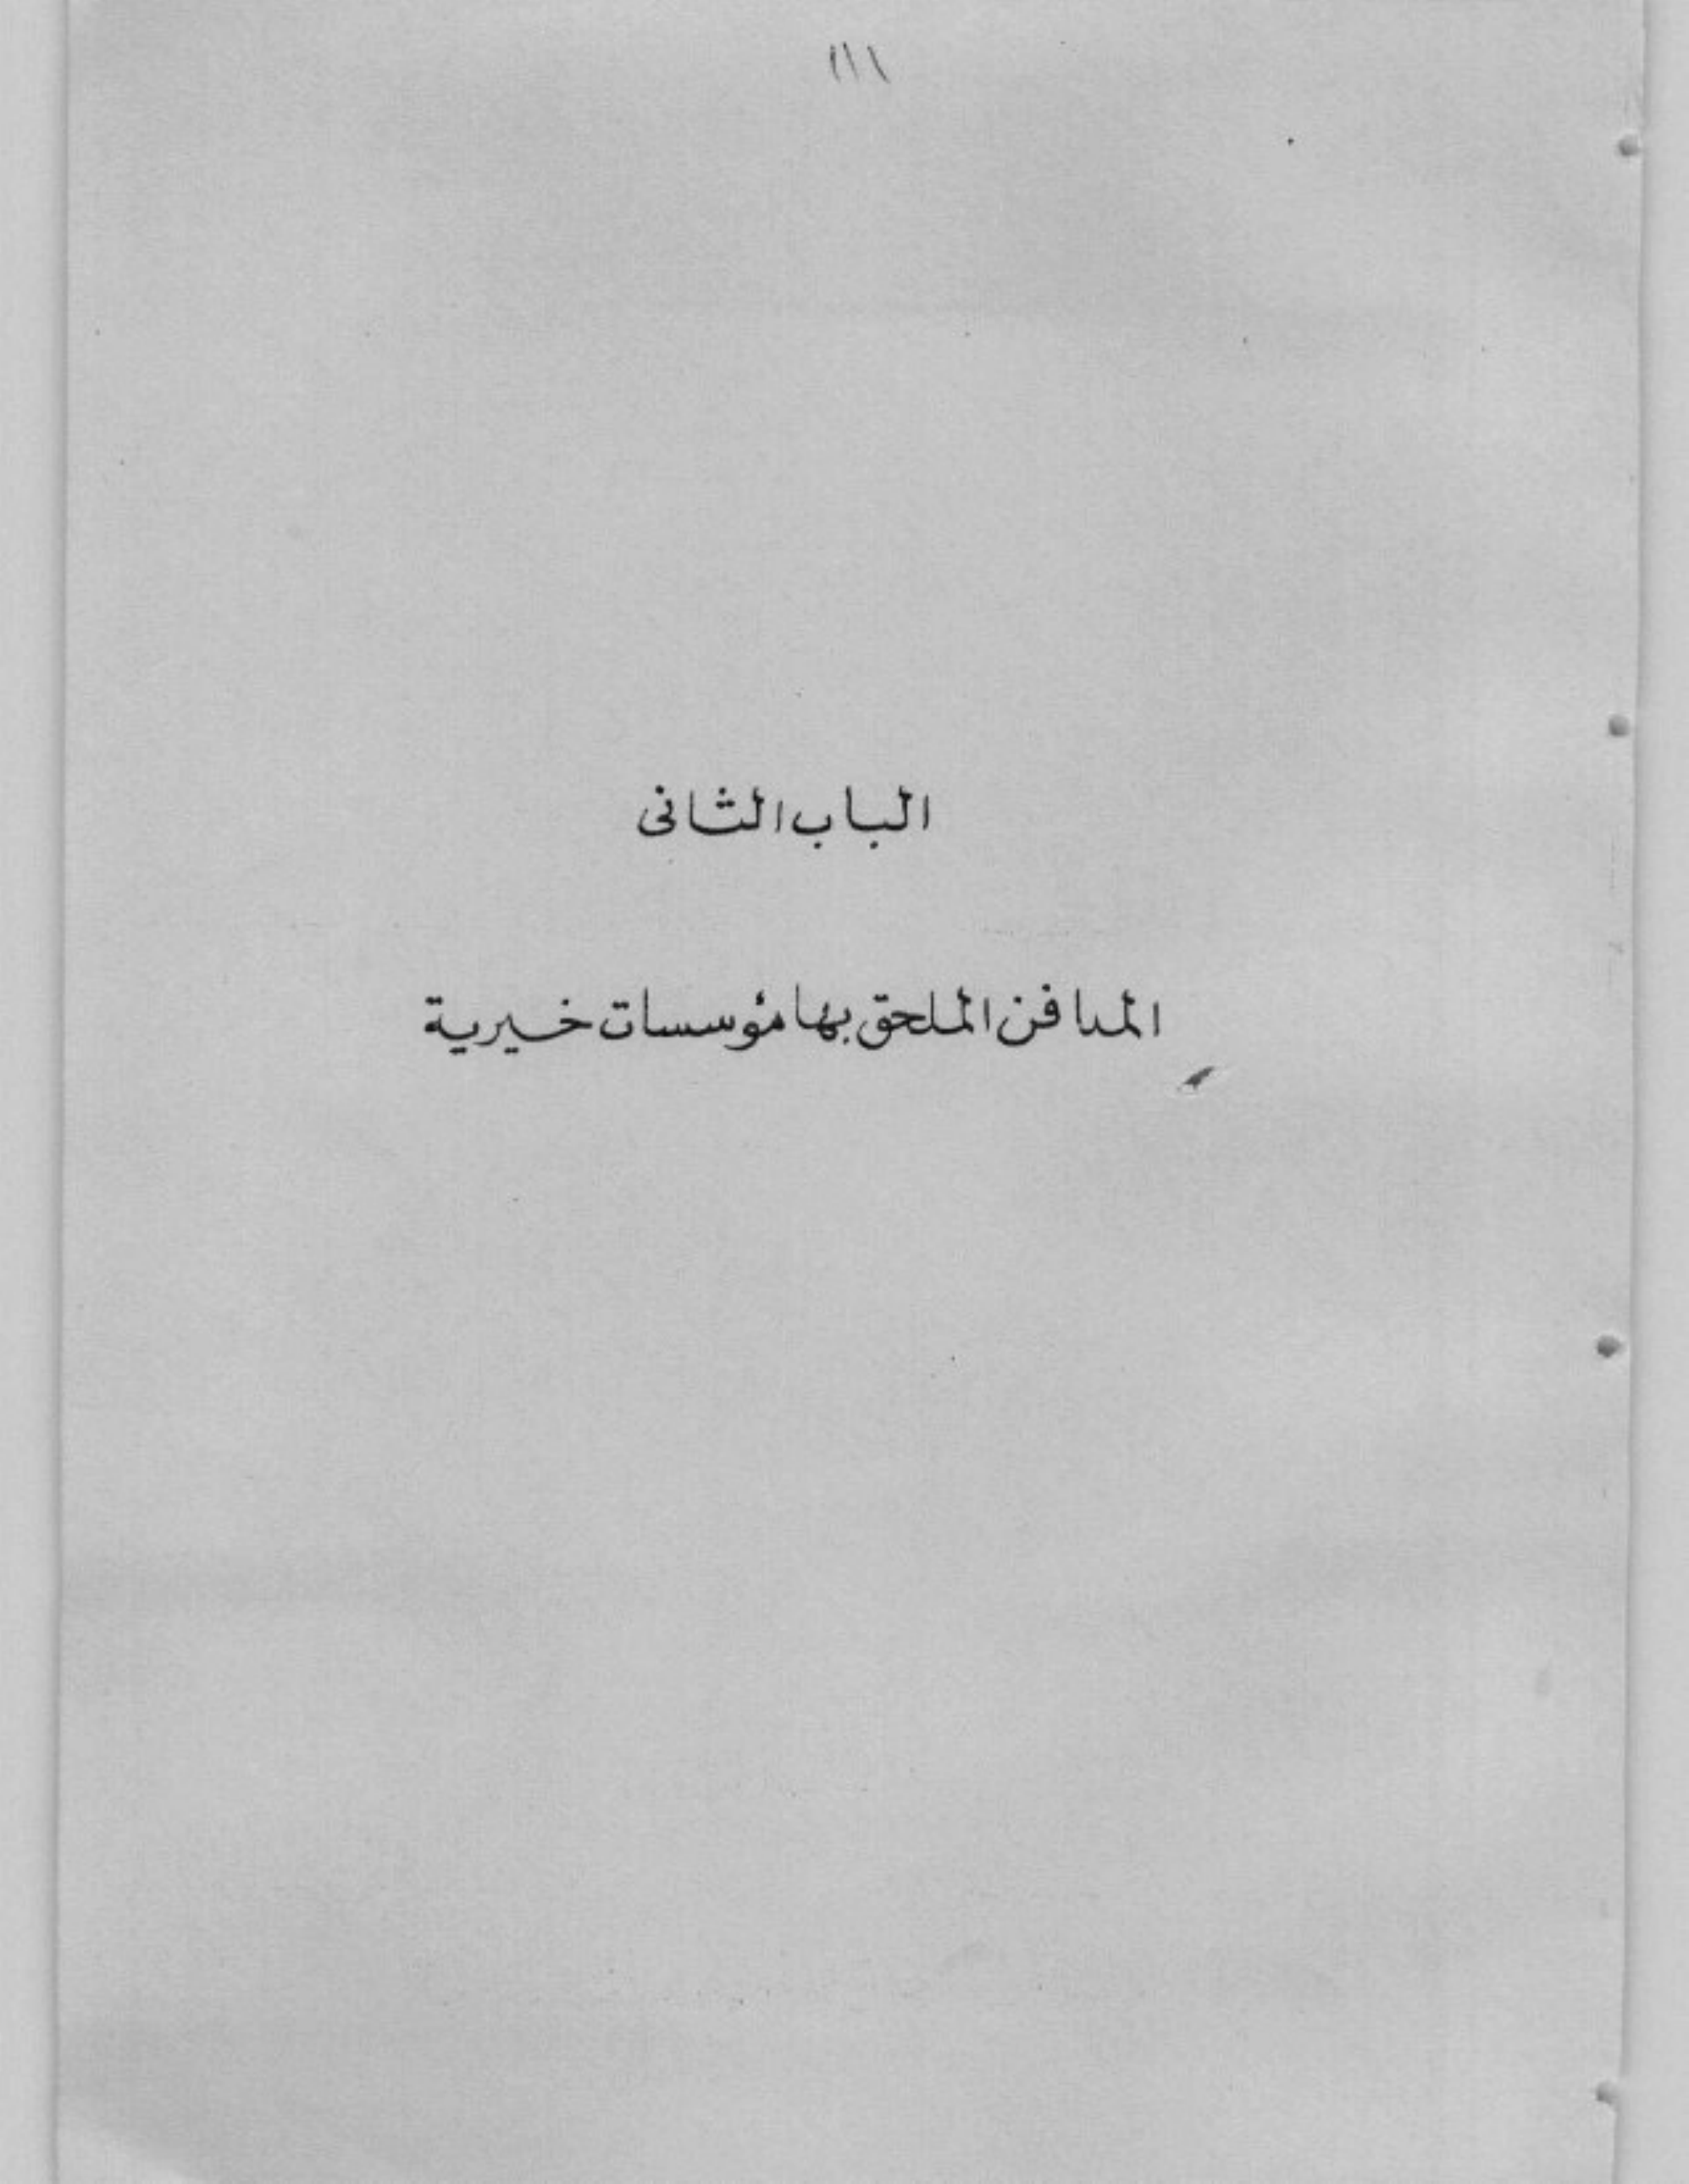 ١١١
الباب الثانى
المدافن الملحق بها مؤسسات خيرية